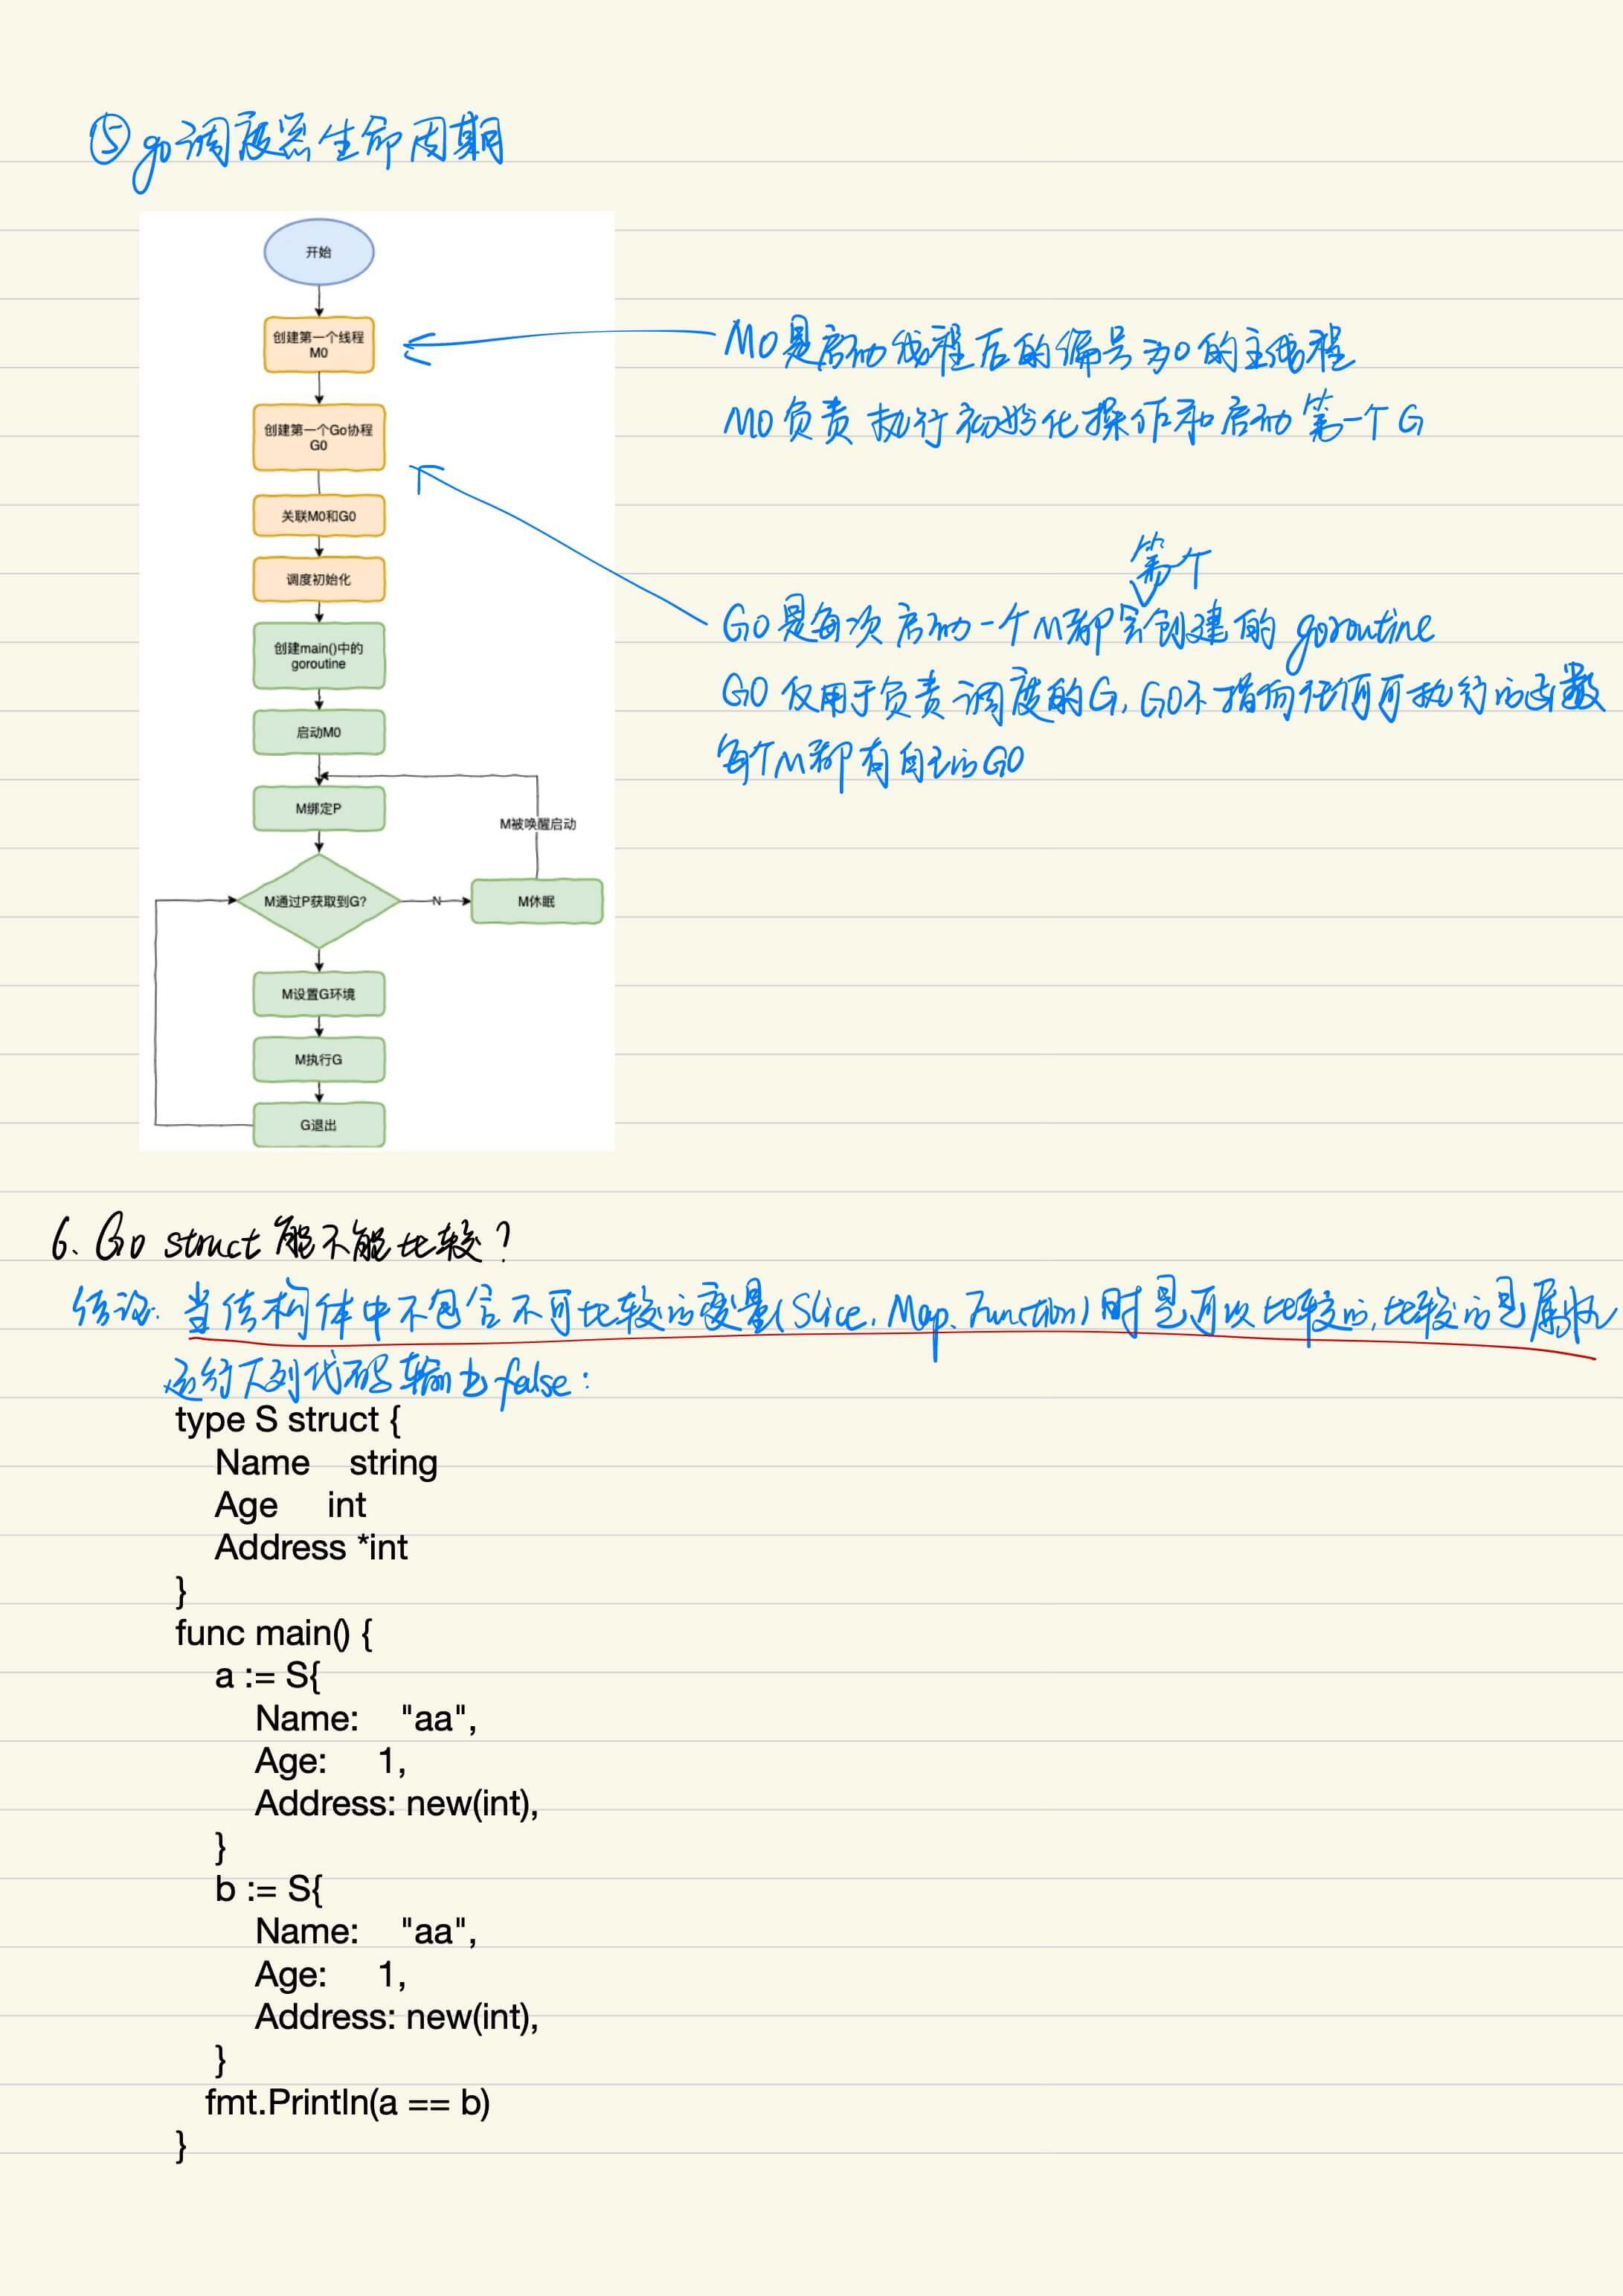 ⑤go调度器生命周期
开始
创建第一个线程
M0
创建第一个Go协程
G0
关联M0和G0
调度初始化
创建main()中的
goroutine
启动M0
M绑定P
M被唤醒启动
M通过P获取到G?
N
M休眠
M设置G环境
M执行G
G退出
M0是启动线程后的编号为0的主线程
M0负责执行初始化操作和启动第一个G
第一个
G0是每次启动一个M都会创建的goroutine
G0仅用于负责调度的G,G0不指向任何可执行的函数
每个M都有自己的G0
6、Go struct能不能比较?
结论:当结构体中不包含不可比较的变量(Slice、Map、Function)时是可以比较的,比较的是属性
运行下列代码输出false:
type S struct {
Name string
Age int
Address *int
}
func main() {
a := S{
Name: "aa",
Age: 1,
Address: new(int),
}
b := S{
Name: "aa",
Age: 1,
Address: new(int),
}
fmt.Println(a == b)
}